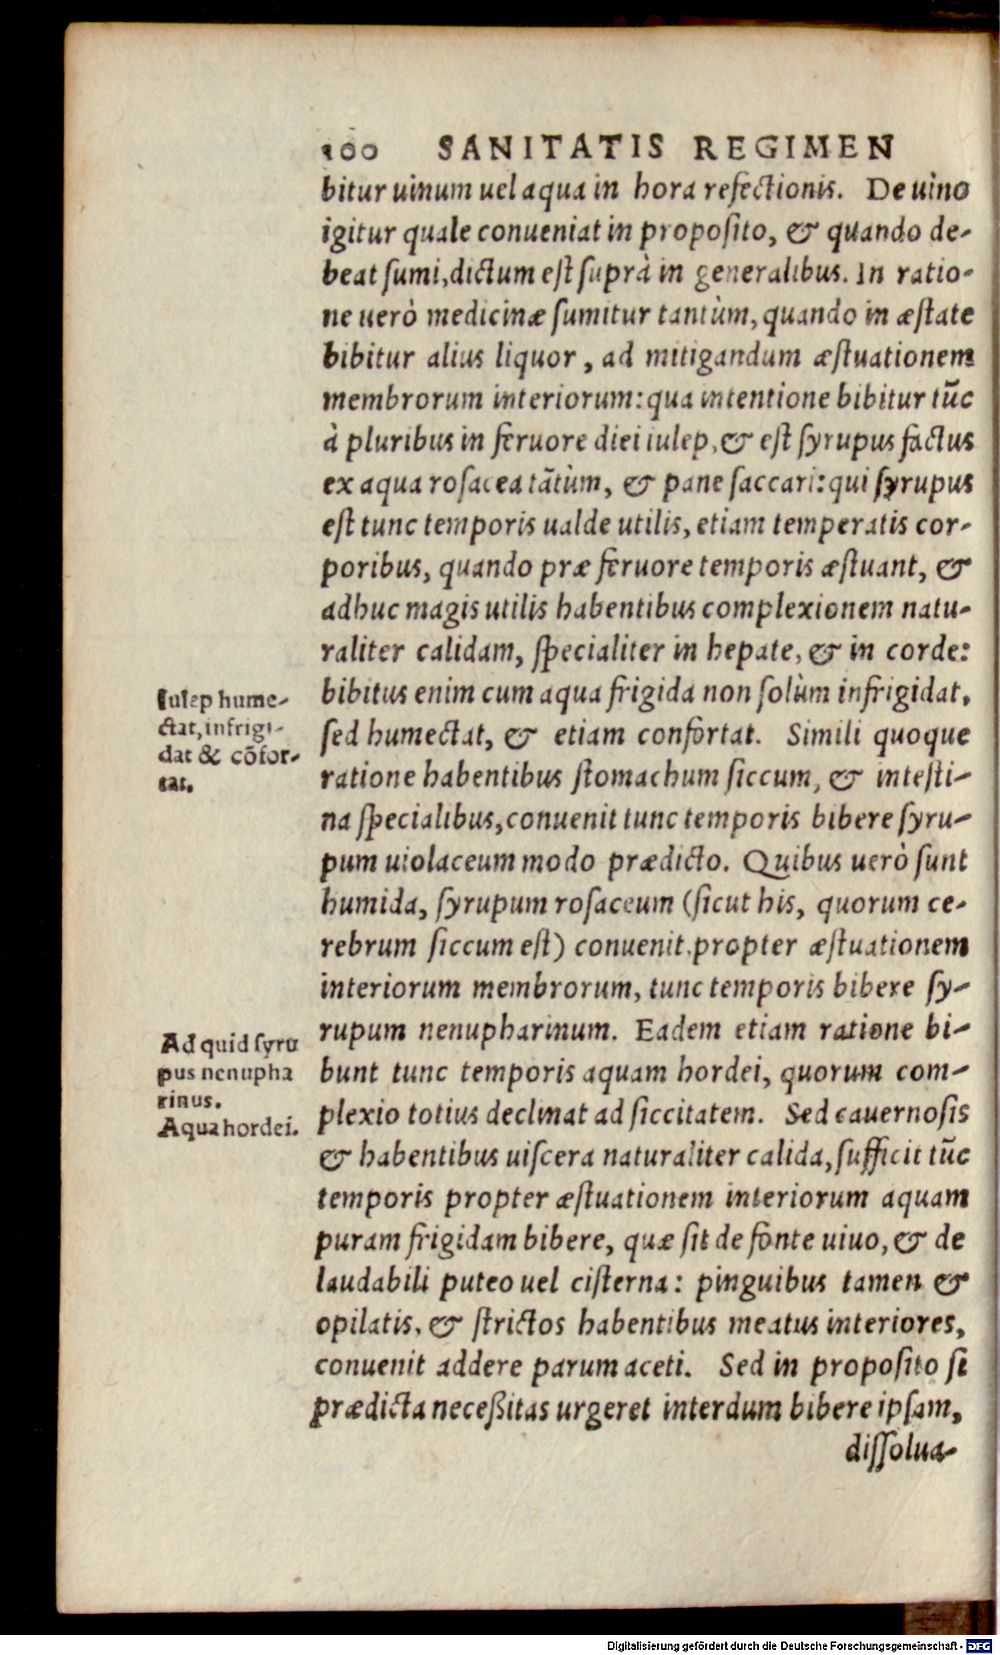 100 SANITATIS REGIMEN
bitur uinum uel aqua in hora refectionis. De uino
igitur quale conueniat in proposito, & quando de-
beat sumi, dictum est suprà in generalibus. In ratio-
ne uerò medicinæ sumitur tantùm, quando in æstate
bibitur alius liquor, ad mitigandum æstuationem
membrorum interiorum: qua intentione bibitur tūc
à pluribus in feruore diei iulep, & est syrupus factus
ex aqua rosacea tātùm, & pane saccari: qui syrupus
est tunc temporis ualde utilis, etiam temperatis cor-
poribus, quando præ feruore temporis æstuant, &
adhuc magis utilis habentibus complexionem natu-
raliter calidam, specialiter in hepate, & in corde:
bibitus enim cum aqua frigida non solùm infrigidat,
sed humectat, & etiam confortat. Simili quoque
ratione habentibus stomachum siccum, & intesti-
na specialibus, conuenit tunc temporis bibere syru-
pum uiolaceum modo prædicto. Quibus uerò sunt
humida, syrupum rosaceum (sicut his, quorum ce-
rebrum siccum est) conuenit, propter æstuationem
interiorum membrorum, tunc temporis bibere sy-
rupum nenupharinum. Eadem etiam ratione bi-
bunt tunc temporis aquam hordei, quorum com-
plexio totius declinat ad siccitatem. Sed cauernosis
& habentibus uiscera naturaliter calida, sufficit tūc
temporis propter æstuationem interiorum aquam
puram frigidam bibere, quæ sit de fonte uiuo, & de
laudabili puteo uel cisterna: pinguibus tamen &
opilatis, & strictos habentibus meatus interiores,
conuenit addere parum aceti. Sed in proposito si
prædicta necessitas urgeret interdum bibere ipsam,
dissolua-
Iulep hume-
ctat, infrigi-
dat & cōfor-
tat.
Ad quid syru
pus nenupha
rinus.
Aqua hordei.
Digitalisierung gefördert durch die Deutsche Forschungsgemeinschaft - DFG